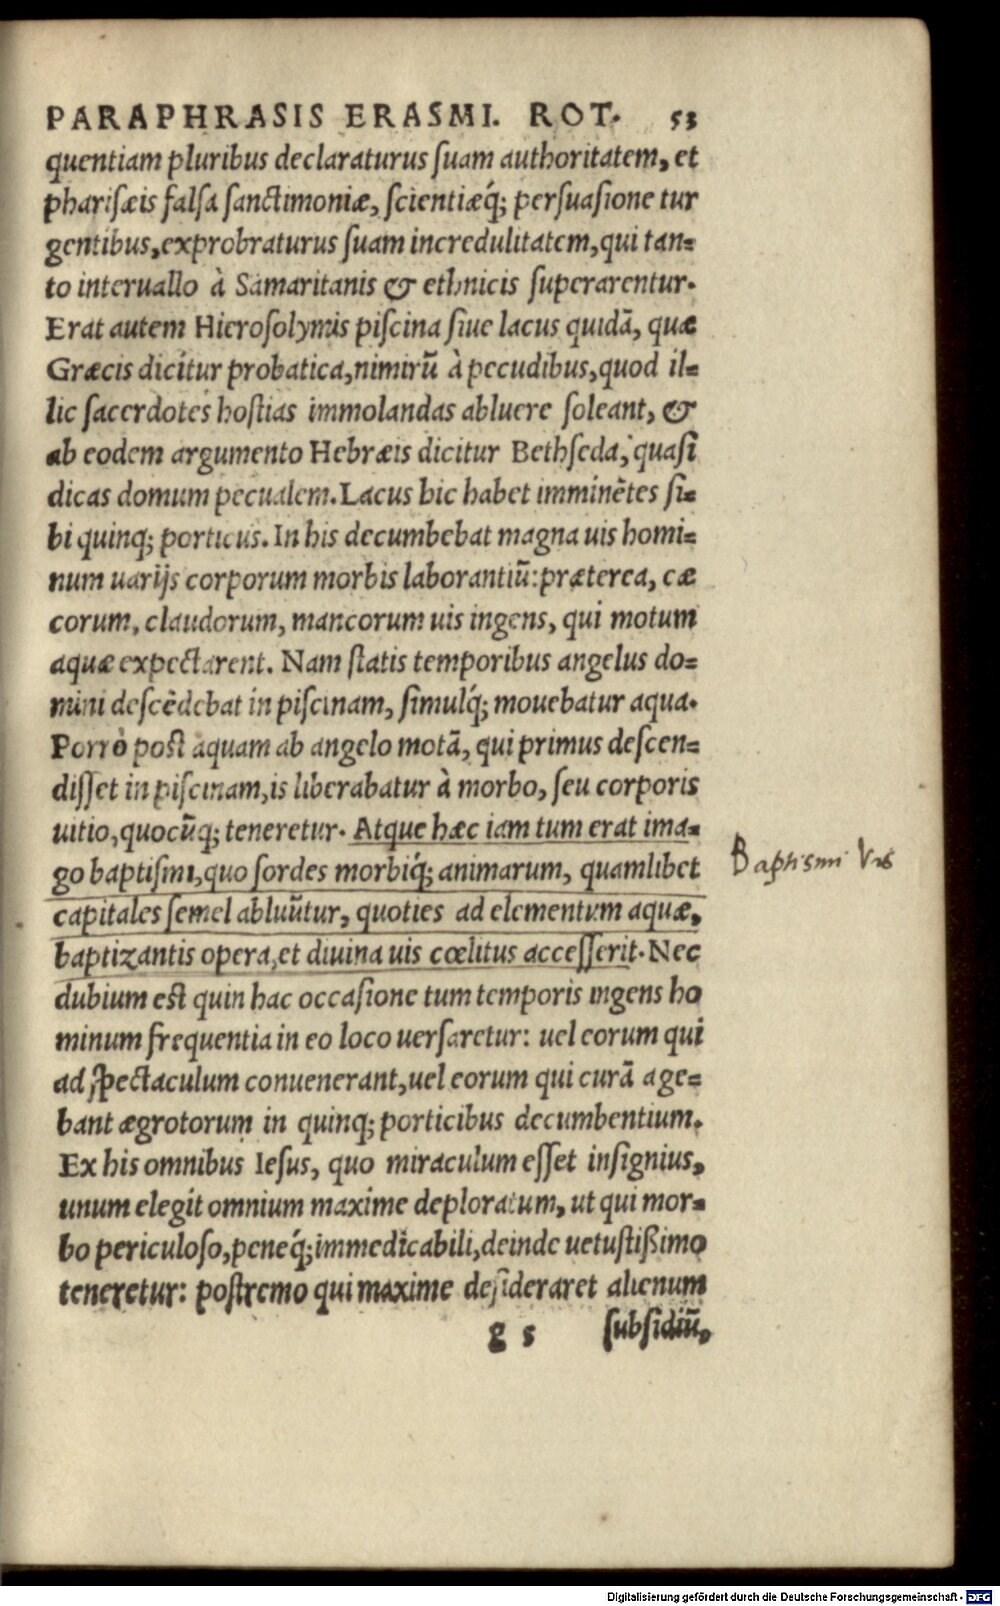 PARAPHRASIS ERASMI. ROT. 53
quentiam pluribus declaraturus ſuam authoritatem, et
phariſæis falſa ſanctimoniæ, ſcientiæq́; perſuaſione tur
gentibus, exprobraturus ſuam incredulitatem, qui tan=
to interuallo à Samaritanis & ethnicis ſuperarentur.
Erat autem Hieroſolymis piſcina ſiue lacus quidã, quæ
Græcis dicitur probatica, nimirũ à pecudibus, quod il=
lic ſacerdotes hoſtias immolandas abluere ſoleant, &
ab eodem argumento Hebræis dicitur Bethſeda, quaſi
dicas domum pecualem. Lacus hic habet imminẽtes ſi=
bi quinq; porticus. In his decumbebat magna uis homi=
num uarijs corporum morbis laborantiũ: præterea, cæ
corum, claudorum, mancorum uis ingens, qui motum
aquæ expectarent. Nam ſtatis temporibus angelus do=
mini deſcẽdebat in piſcinam, ſimulq́; mouebatur aqua.
Porrò poſt aquam ab angelo motã, qui primus deſcen=
diſſet in piſcinam, is liberabatur à morbo, ſeu corporis
uitio, quocũq; teneretur. Atque hæc iam tum erat ima=
go baptiſmi, quo ſordes morbiq́; animarum, quamlibet
Baptismi Vis
capitales ſemel abluũtur, quoties ad elementum aquæ,
baptizantis opera, et diuina uis cœlitus acceſſerit. Nec
dubium eſt quin hac occaſione tum temporis ingens ho
minum frequentia in eo loco uerſaretur: uel eorum qui
ad ſpectaculum conuenerant, uel eorum qui curã age=
bant ægrotorum in quinq; porticibus decumbentium.
Ex his omnibus Ieſus, quo miraculum eſſet inſignius,
unum elegit omnium maxime deploratum, ut qui mor=
bo periculoſo, peneq́; immedicabili, deinde uetuſtiſſimo
teneretur: poſtremo qui maxime deſideraret alienum
g 5 ſubſidiũ,
Digitalisierung gefördert durch die Deutsche Forschungsgemeinschaft - DFG